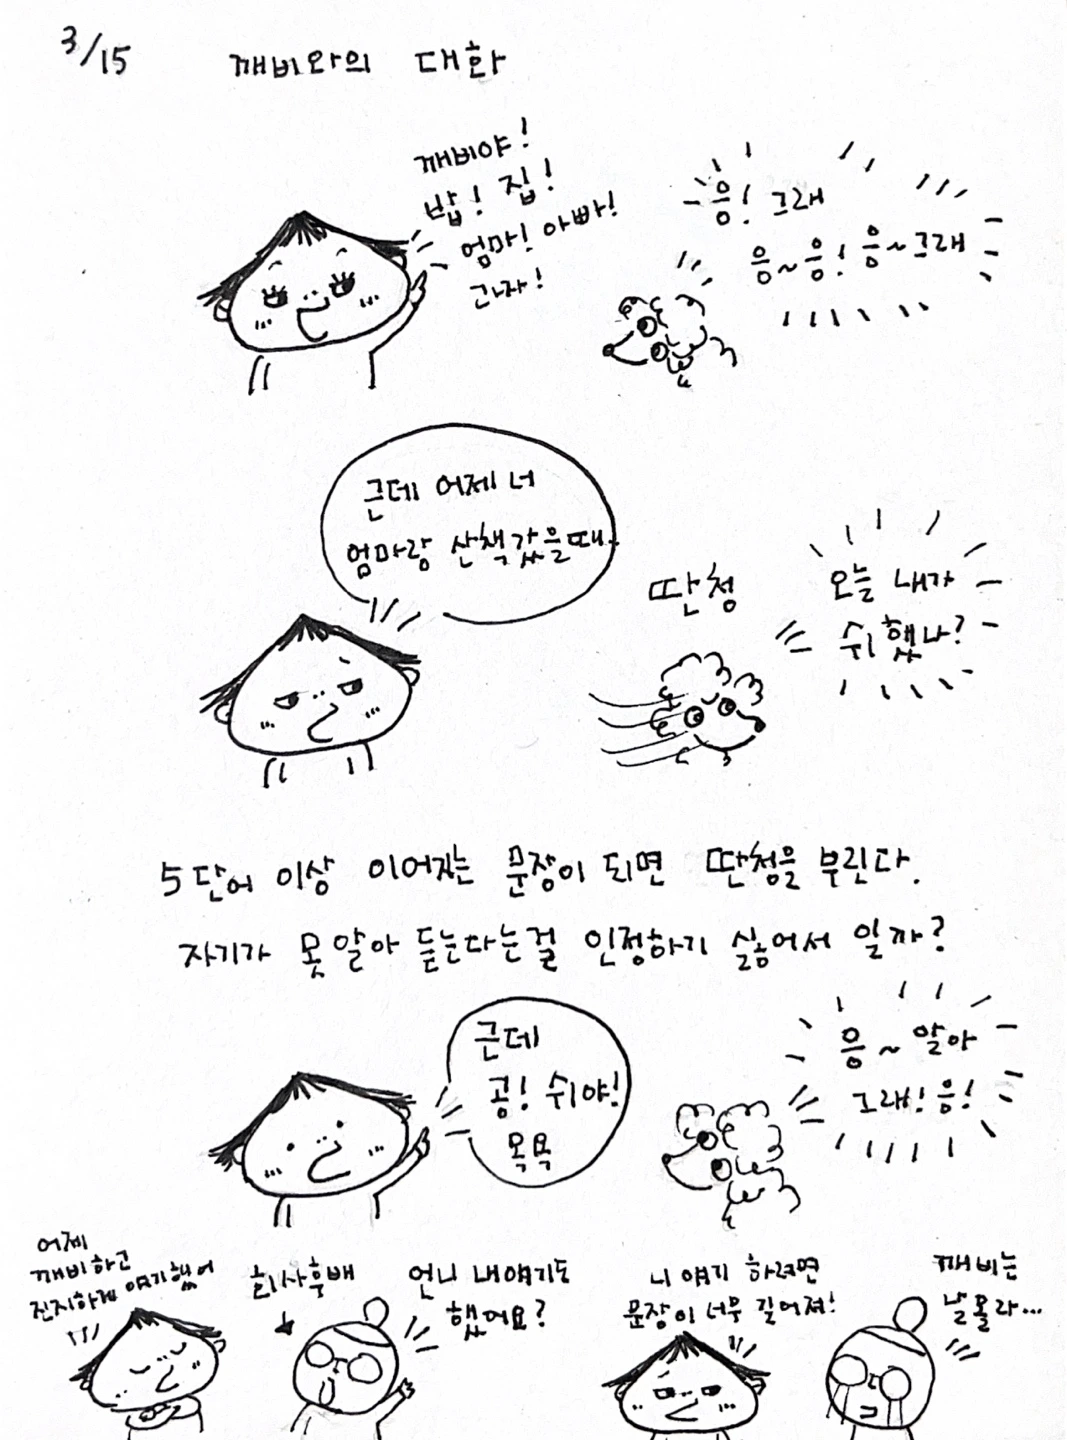 3/15 깨비와의 대화
깨비야!
밥! 집!
엄마! 아빠!
과자!
응! 그래
응~응! 응~그래
근데 어제 너
엄마랑 산책갔을때..
딴청
오늘 내가
쉬 했나?
5단어 이상 이어지는 문장이 되면 딴청을 부린다.
자기가 못 알아 듣는다는걸 인정하기 싫어서 일까?
근데
공! 쉬야!
목욕
응~알아
그래! 응!
어제
깨비하고
진지하게 얘기했어
회사후배
언니 내얘기도
했어요?
니 얘기 하려면
문장이 너무 길어져!
깨비는
날 몰라...